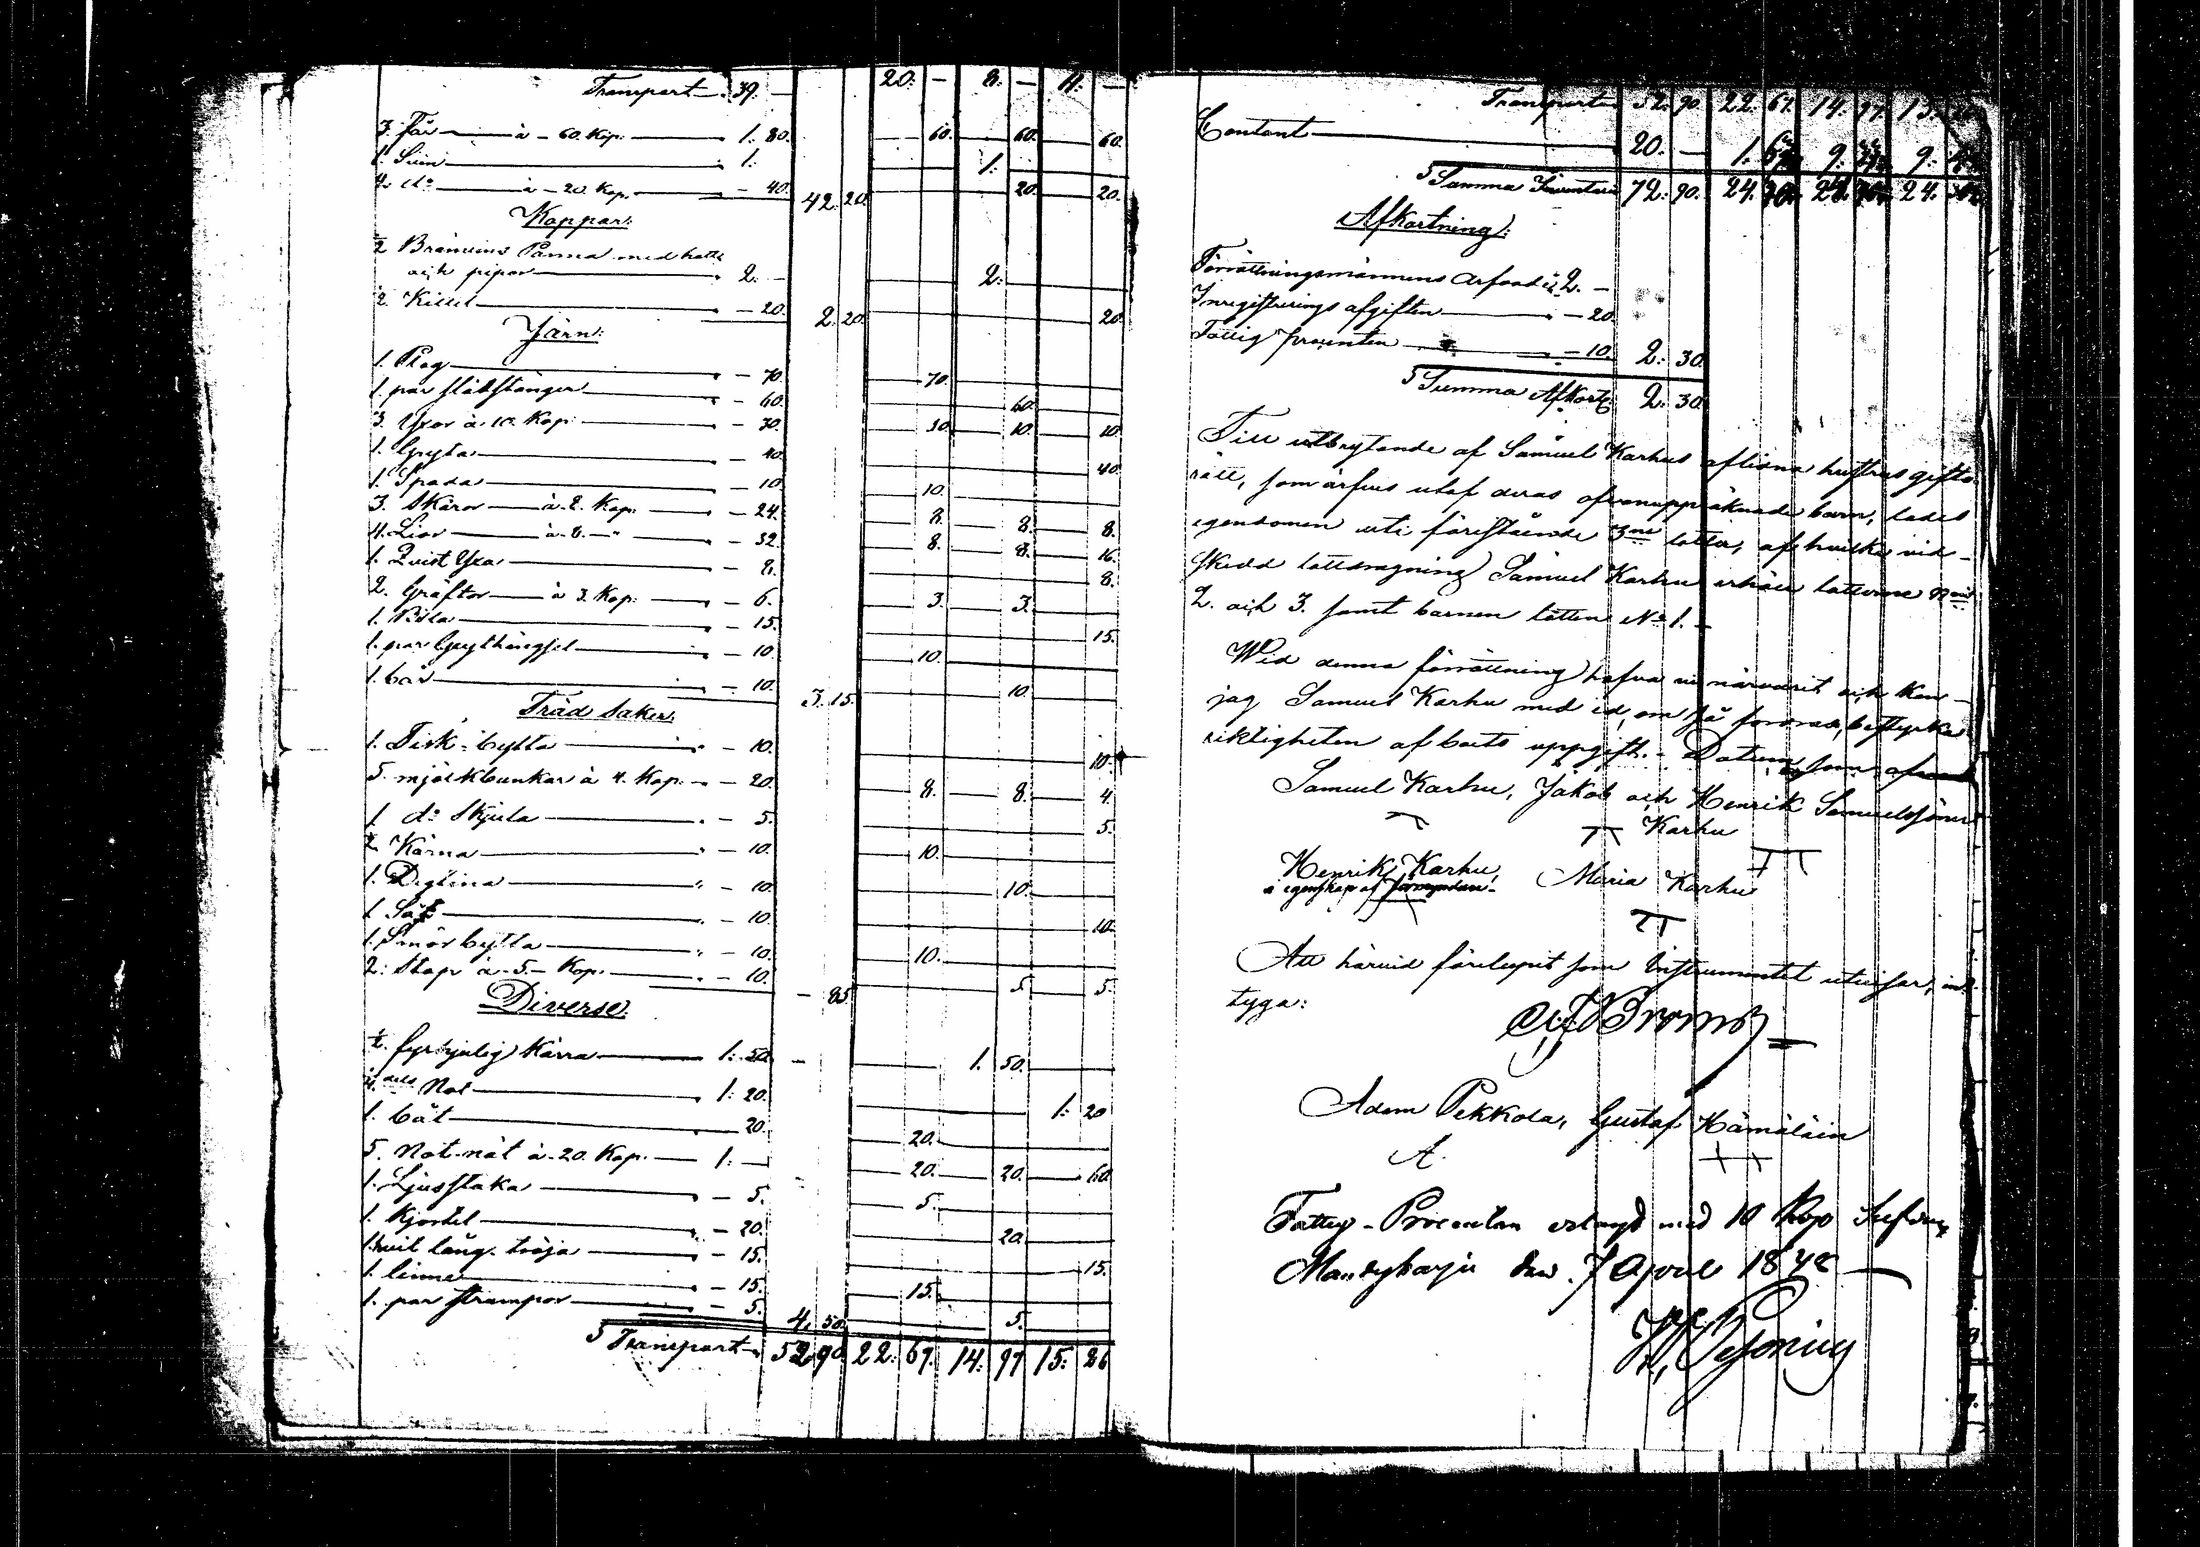 Transport 39. — 20. — 8. — 11. —
3. Får — à — 60. Kop. — 1. 80. 60. 60. 60.
1. Svin — 1. 1.
2. do — à — 20. Kop. — 40. 42. 20. 20. 20.
Koppar:
½ Bränvins Panna med hatt
och pipor — 2. — 2.
½ Kittel — 20. 2. 20. 20.
Järn:
1. Plog — 70. 70.
1. par stöbstänger — 60. 60.
3. Yxor à 10. Kop. — 30. 10. 10. 10.
1. Gryta — 40. 40.
1. Spada — 10. 10.
3. Skäror — à 8. Kop. — 24. 8. 8. 8.
4. Lior — à 8. — " — 32. 8. 8. 16.
1. Qvist Yxa — 8. 8.
2. Gräftor — à 3. Kop. — 6. 3. 3.
1. Bila — 15. 15.
1. par Grythängsel — 10. 10.
1. bår — 10. 3. 15. 10.
Träd Saker:
1. Fisk-bytta — 10. 10.
5. mjölkbunkar à 4. Kop. — 20. 8. 8. 4.
1. do Skjula — 5. 5.
Kärna — 10. 10.
1. Degtina — 10. 10.
1. Så — 10. 10.
1. Smörbytta — 10. 10.
2. Stop à 5. — Kop. — 10. — 85. 5. 5.
Diverse.
½ fyrhjulig Kärra — 1. 50. 1. 50.
dels Not — 1. 20. 1. 20
1. båt — 20. 20.
5. Not-nät à 20. Kop. — 1. — 20. 20. 60.
1. Ljusstaka — 5. 5.
1. Kjortel — 20. 20.
1. hvit lång tröja — 15. 15.
1. linne — 15. 15.
1. par strumpor — 5. 4. 50. 5.
Transport 52. 90. 22. 67. 14. 97. 15. 26
Transport 52. 90. 22. 67. 14. 97. 15.
Contant — 20. — 1. 9. 9.
Summa Inventarii 72. 90. 24. 24. 24.
Afkortning:
Förrättningsmännens arfvode 2. —
Inregistrerings afgiften — 20.
Fattig procenten — 10. 2. 30.
Summa Afkortg 2. 30.
Till utbrytande af Samuel Karhus aflidna hustrus gifto-
rätt, som ärfves utaf deras ofvanuppräknade barn, lades
egendomen uti förestående 3ne lotter, af hvilka vid
skedd lottdragning Samuel Karhu erhöll lotterne No
2. och 3. samt barnen lotten No 1. —
Wid denna förrättning hafva vi närvarit och kan
jag Samuel Karhu med ed, om så fordras, bestyrka
riktigheten af boets uppgift. — Datum som ofvan
Samuel Karhu, Jakob och Henrik Samuelssöner
Karhu
Henrik Karhu, Maria Karhu
i egenskap af förmyndare
Att härvid förelupit som Instrumentet utvisar, in-
tyga:
Adam Pekkola, Gustaf Hämäläin
A.
Fattig-Procenten erlagd med 10 Kop Silfver
den 7 April 1848